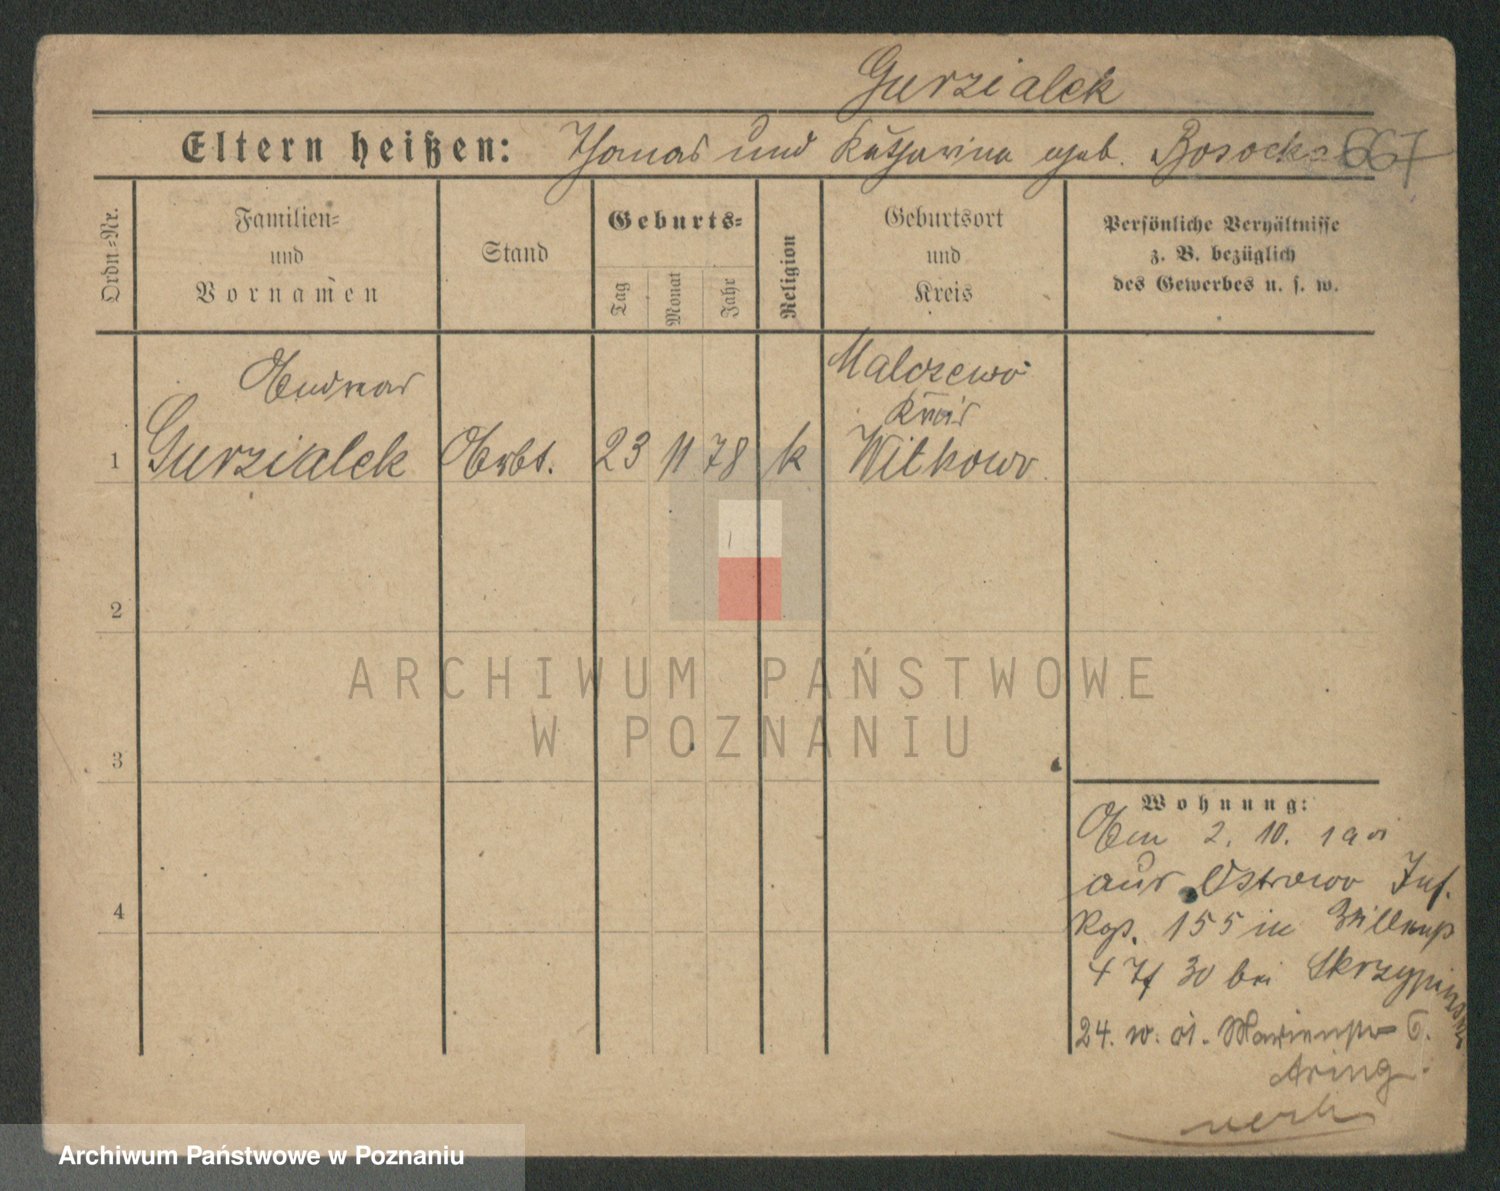 Gurzialek
Eltern heißen: Thomas und Katharina geb. Bosocka 667
Ordn=Nr.
Familien=
und
Vornamen
Stand
Geburts=
Tag
Monat
Jahr
Religion
Geburtsort
und
Kreis
Persönliche Verhältnisse
z. B. bezüglich
des Gewerbes u. s. w.
Andreas
Malczewo
Kreis
1 Gurzialek Arbt. 23 11 78 k Witkowo
2
3
4
ARCHIWUM PAŃSTWOWE
W POZNANIU
Wohnung:
Am 2. 10. 1901
aus Ostrowo Inf.
Rgt. 155 in
30 bei Skrzypinski
24. 6.
verh
Archiwum Państwowe w Poznaniu